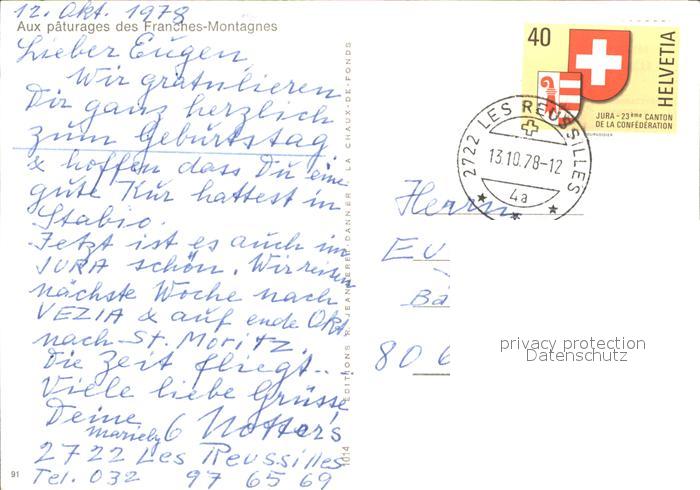 12. Okt. 1978
Aux pâturages des Franches-Montagnes
Lieber Eugen
Wir gratulieren
Dir ganz herzlich
zum Geburtstag
& hoffen dass Du eine
gute Kur hattest in
Stabio.
Jetzt ist es auch im
JURA schön. Wir reisen
nächste Woche nach
VEZIA & auf ende Okt.
nach St. Moritz.
Die Zeit fliegt...
Viele liebe Grüsse
Deine
6 Notter's
2722 Les Reussilles
Tel. 032 97 65 69
91
1014
40
HELVETIA
JURA - 23ème CANTON
DE LA CONFÉDÉRATION
2722 LES REUSSILLES
13.10.78-12
4a
Herrn
EU
Bä
806
privacy protection
Datenschutz